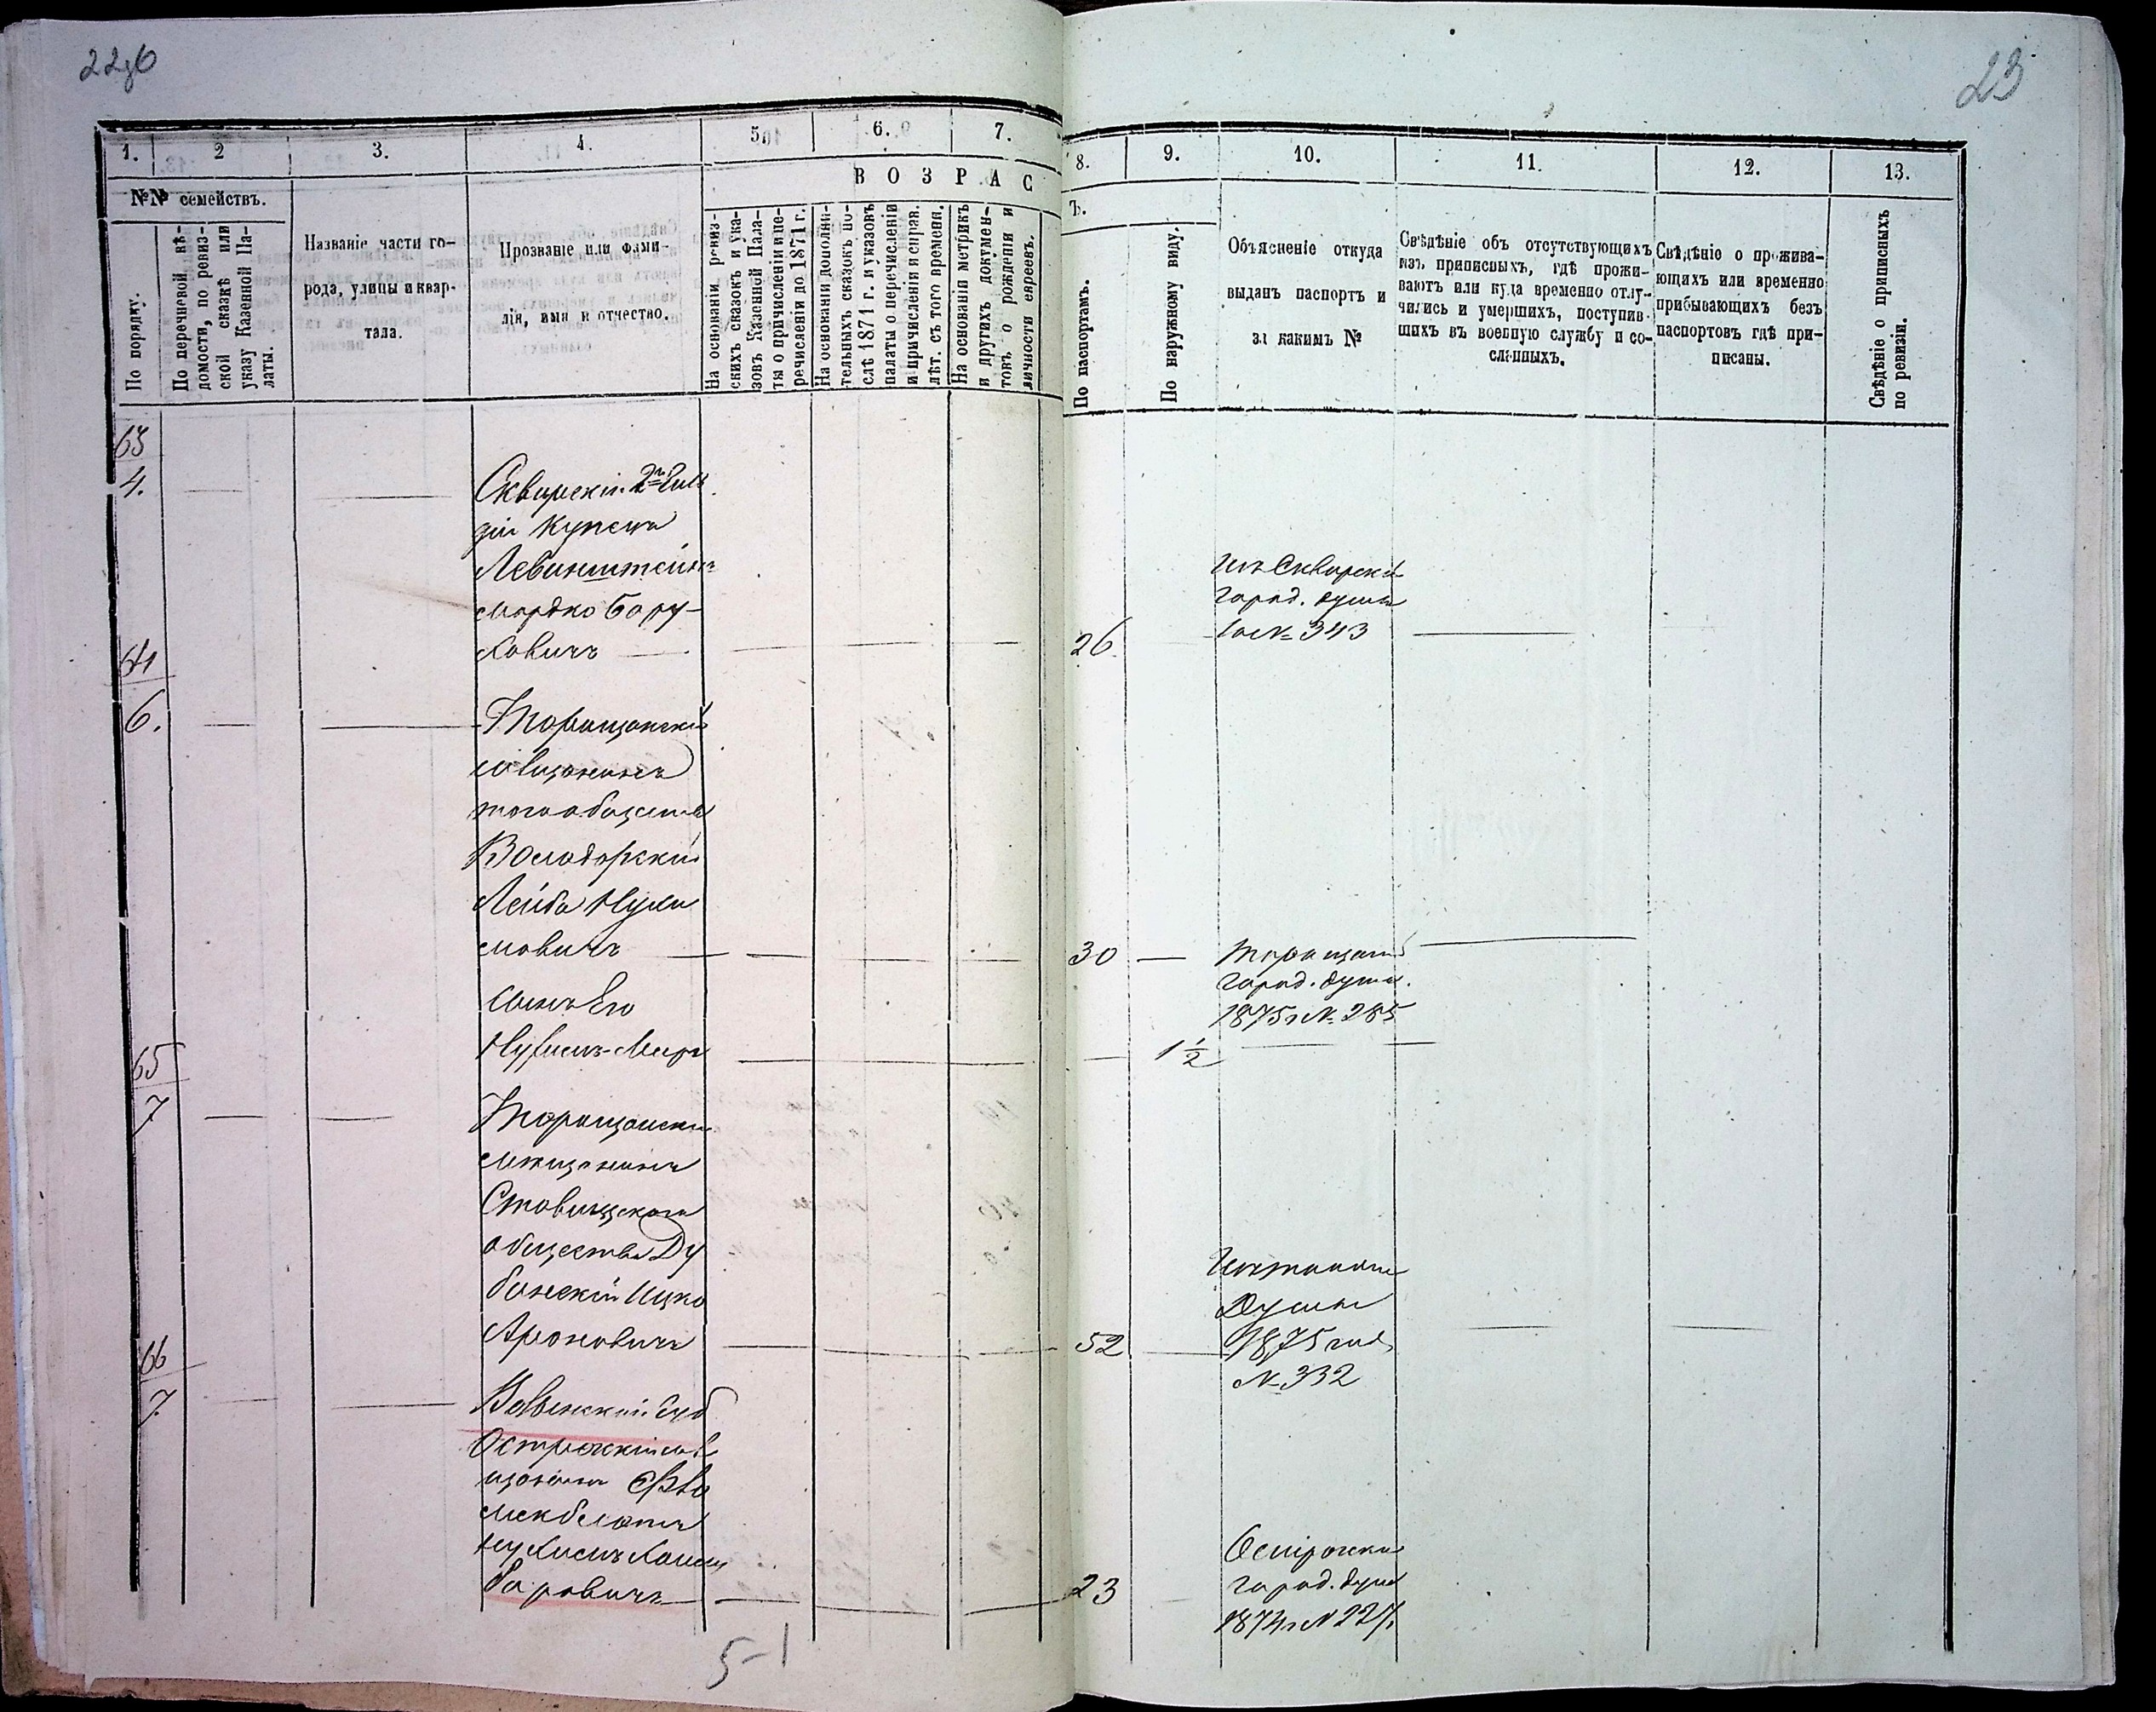 22об
23
1.
2
3.
4.
5.
6.
7.
8.
9.
10.
11.
12.
13.
№№ семействъ.
В О З Р А С
Ъ.
По порядку.
По перечневой вѣ-
домости, по ревиз-
ской сказкѣ или
указу Казенной Па-
латы.
Названіе части го-
рода, улицы и квар-
тала.
Прозваніе или фами-
лія, имя и отчество.
На основаніи ревиз-
скихъ сказокъ и ука-
зовъ Казенной Пала-
ты о причисленіи и пе-
речисленіи до 1871 г.
На основаніи дополни-
тельныхъ сказокъ по-
слѣ 1871 г. и указовъ
палаты о перечисленіи
и причисленіи и справ.
лѣт. съ того времени.
На основаніи метрикъ
и другихъ докумен-
товъ о рожденіи и
личности евреевъ.
По паспортамъ.
По наружному виду.
Объясненіе откуда
выданъ паспортъ и
за какимъ №
Свѣдѣніе объ отсутствующихъ
изъ приписныхъ, гдѣ прожи-
ваютъ или куда временно отлу-
чились и умершихъ, поступив-
шихъ въ военную службу и со-
сланныхъ.
Свѣдѣніе о прожива-
ющихъ или временно
прибывающихъ безъ
паспортовъ гдѣ при-
писаны.
Свѣдѣніе о приписныхъ
по ревизіи.
63
4.
Сквирскій 2й Гиль
діи Купецъ
Левинштейнъ
Мордко Бору-
ховичъ
26
Изъ Сквирск
город. думы
за № 343
64
6.
Таращанскій
мѣщанинъ
того общества
Володарскій
Лейба Нухи
мовичъ
30
Таращан
город. думы.
1875 г № 285
Сынъ Его
Нухимъ-Меер
1 1/2
65
7
Таращански
мѣщанинъ
Ставищскаго
общества Ду
банскій Ицко
Ароновичъ
52
Изъ тойже
Думы
1875 год
№ 332
66
7.
Волынской Губ
Острожкій мѣ
щанинъ
Нухимъ
баровичъ
23
Острожской
город. думы
1874 г № 227.
5-1